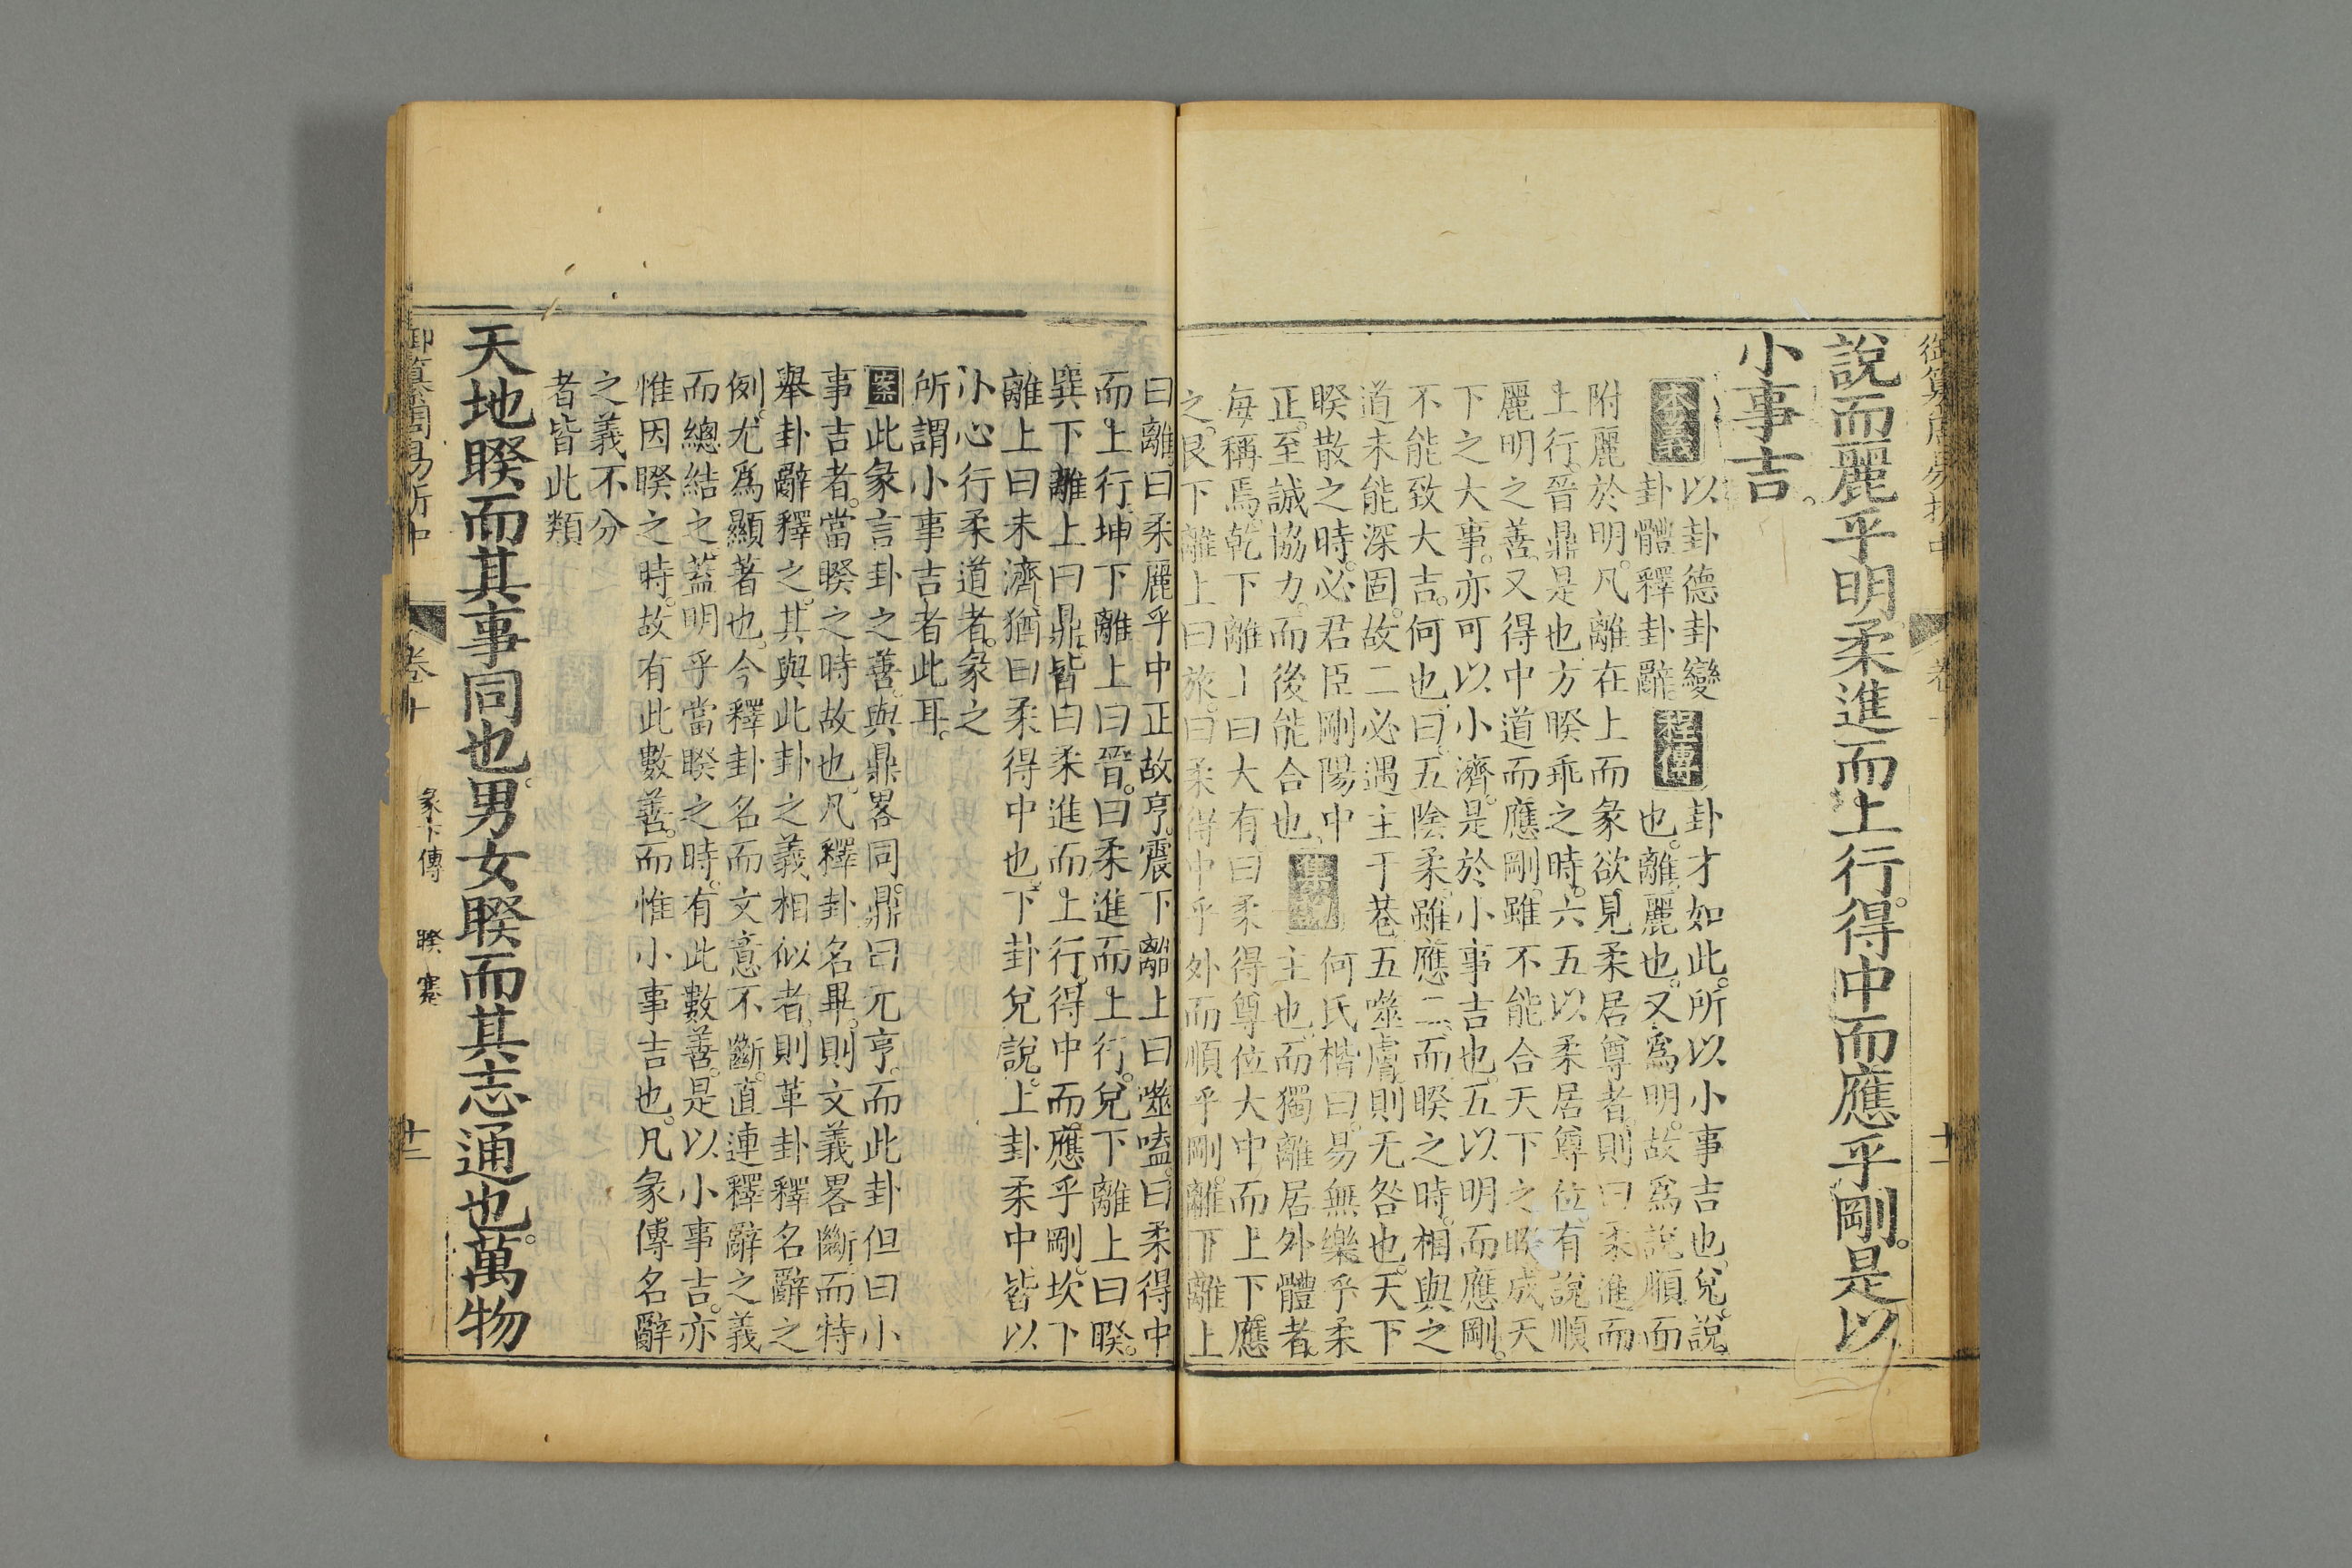 御纂周易折中 卷十 十一
說而麗乎明柔進而上行。得中而應乎剛。是以
小事吉。
本義 以卦德卦變 程傳 卦才如此。所以小事吉也。兌。說
卦體釋卦辭 也。離。麗也。又爲明。故爲說順而
附麗於明。凡離在上而彖欲見柔居尊者。則曰柔進而
上行。晉鼎是也。方睽乖之時。六五以柔居尊位。有說順
麗明之善。又得中道而應剛。雖不能合天下之睽。成天
下之大事。亦可以小濟。是於小事吉也。五以明而應剛。
不能致大吉。何也。曰。五陰柔。雖應二。而睽之時。相與之
道未能深固。故二必遇主于巷。五噬膚。則无咎也。天下
睽散之時。必君臣剛陽中
正。至誠協力。而後能合也 集說 何氏楷曰。易無樂乎柔
主也。而獨離居外體者。
每稱焉。乾下離上曰大有曰柔得尊位大中而上下應
之。艮下離上曰旅。曰柔得中乎外而順乎剛。離下離上
曰離。曰柔麗乎中正故亨。震下離上曰噬嗑。曰柔得中
而上行。坤下離上曰晉。曰柔進而上行。兌下離上曰睽。
巽下離上曰鼎。皆曰柔進而上行。得中而應乎剛。坎下
離上曰未濟。猶曰柔得中也。下卦兌說。上卦柔中。皆以
小心行柔道者。彖之
所謂小事吉者此耳。
案 此彖言卦之善。與鼎畧同。鼎曰元亨。而此卦但曰小
事吉者。當睽之時故也。凡釋卦名畢。則文義畧斷。而特
舉卦辭釋之。其與此卦之義相似者。則革卦釋名辭之
例。尤爲顯著也。今釋卦名而文意不斷。直連釋辭之義
而總結之。蓋明乎當睽之時。有此數善。是以小事吉。亦
惟因睽之時。故有此數善。而惟小事吉也。凡彖傳名辭
之義不分
者皆此類
天地睽而其事同也。男女睽而其志通也。萬物
御纂周易折中 卷十 彖下傳 睽 蹇 十二